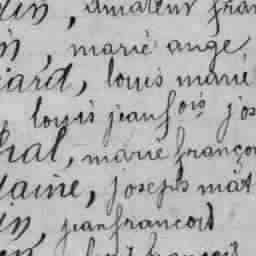 in, amateur fran
n, marié ange
iard, louis marié
louis jeanfois jos
hal, marié franço
laine, joseph mat
in, jeanfrancois